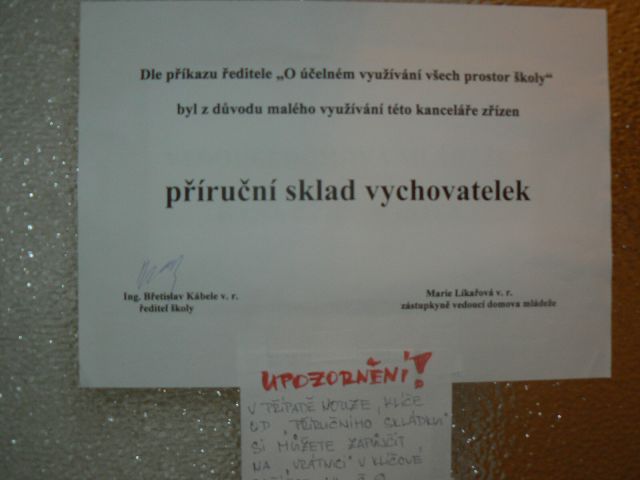 Dle příkazu ředitele „O účelném využívání všech prostor školy“
byl z důvodu malého využívání této kanceláře zřízen
příruční sklad vychovatelek
Ing. Břetislav Kábele v. r.
ředitel školy
Marie Likařová v. r.
zástupkyně vedoucí domova mládeže
UPOZORNĚNÍ!
V PŘÍPADĚ NOUZE, KLÍČE
OD „PŘÍRUČNÍHO SKLÁDKU“
SI MŮŽETE ZAPŮJČIT
NA „VRÁTNICI“ V KLÍČOVÉ